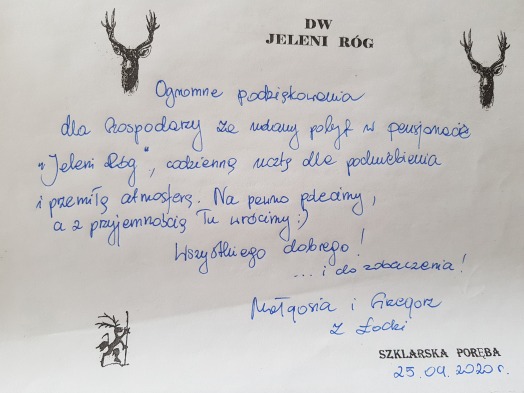 DW
JELENI RÓG
Ogromne podziękowania
dla Gospodarzy za udany pobyt w pensjonacie
"Jeleni Róg", codzienną ucztę dla podniebienia
i przemiłą atmosferę. Na pewno polecimy,
a z przyjemnością Tu wrócimy :)
Wszystkiego dobrego!
... i do zobaczenia!
Małgosia i Grzegorz
z Łodzi
SZKLARSKA PORĘBA
25.04.2020 r.